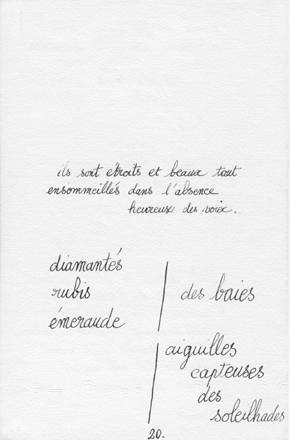 ils sont étroits et beaux tout
ensommeillés dans l'absence
heureuse des voix.
diamantés
rubis
émeraude
des baies
aiguilles
capteuses
des
soleilhades
20.